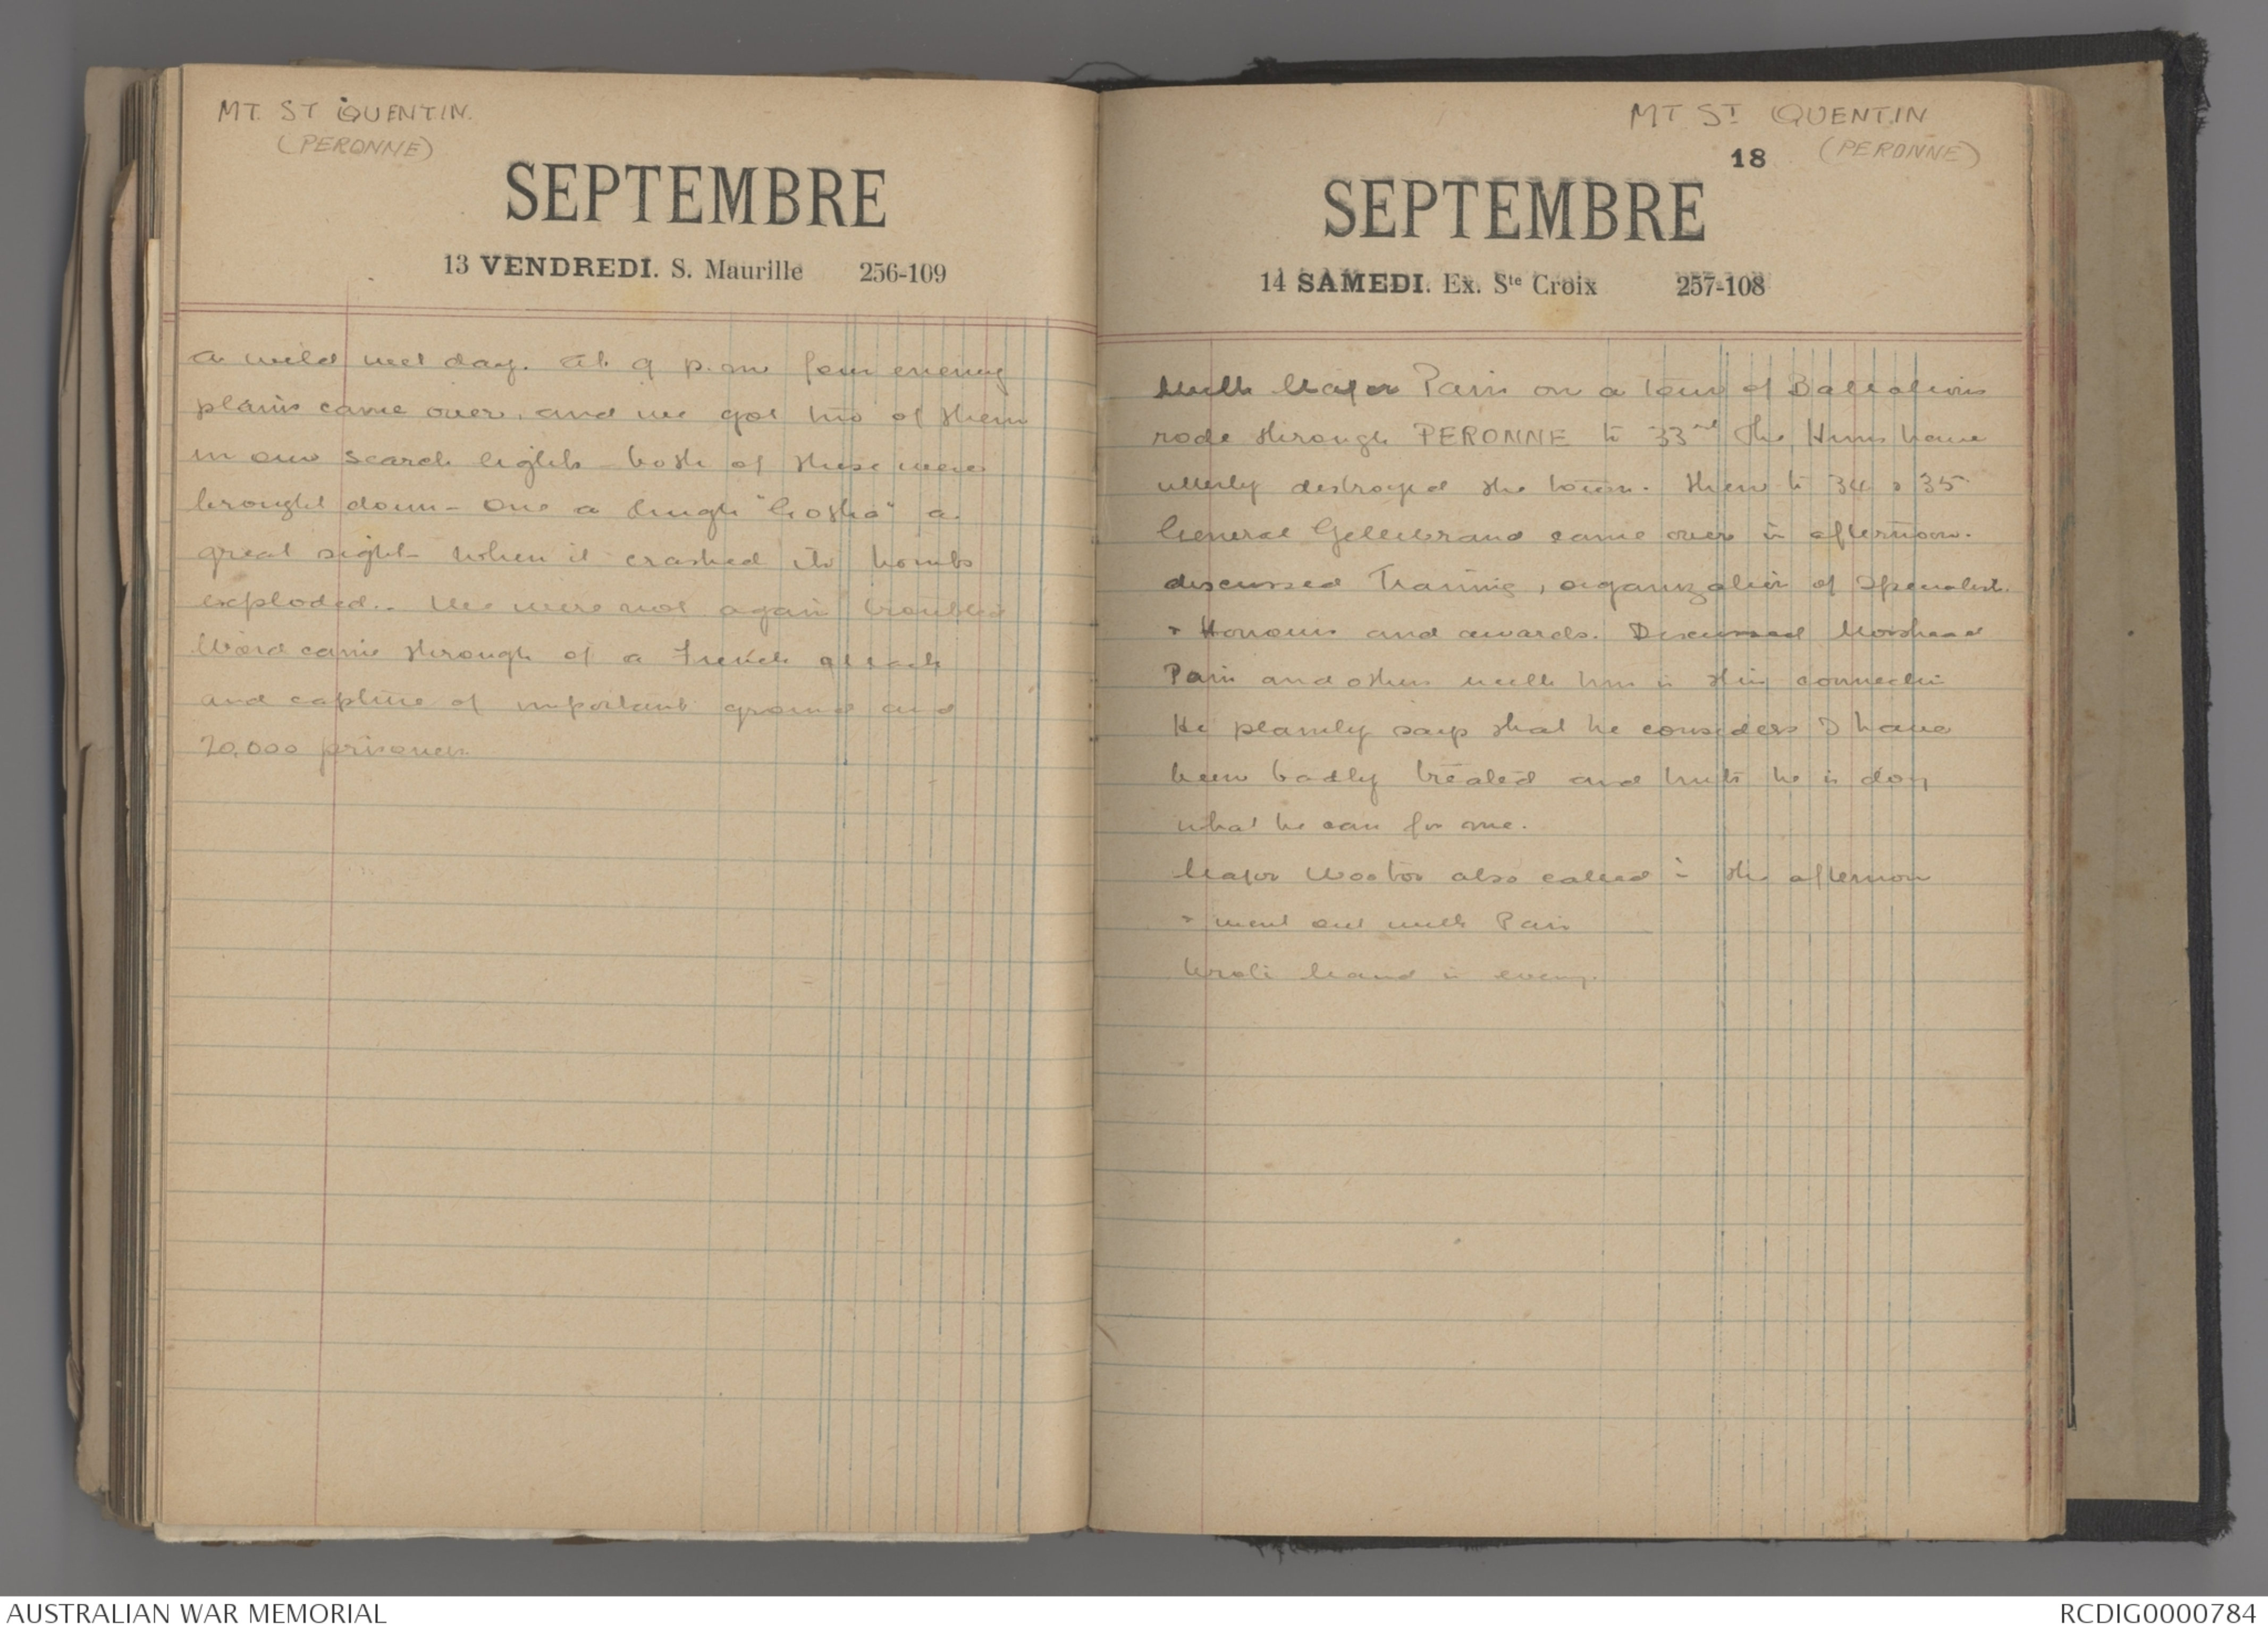 MT. ST QUENTIN.
(PERONNE)
SEPTEMBRE
13 VENDREDI. S. Maurille 256-109
A wild wet day. At 9 p.m four enemy
plains came over, and we got two of them
in our search lights - both of these were
brought down - One a hugh "Gotha" a
great sight - when it crashed its bombs
exploded.. We were not again troubled
Word came through of a French attack
and capture of important ground and
20,000 prisoners
MT ST QUENTIN
(PERONNE)
18
SEPTEMBRE
14 SAMEDI. Ex. Ste Croix 257-108
With Major Pain on a tour of Battalions
rode through PERONNE to 33rd The Huns have
utterly destroyed the town. then to 34 & 35
General Gellibrand came over in afternoon.
discussed Training, organization of Specialists
& Honours and awards. Discussed Morshead
Pain and others with him in this connection
He plainly says that he considers I have
been badly treated and hints he is doing
what he can for me.
Major Wootton also called in the afternoon
& went out with Pain
Wrote Maud in eveng.
AUSTRALIAN WAR MEMORIAL
RCDIG0000784